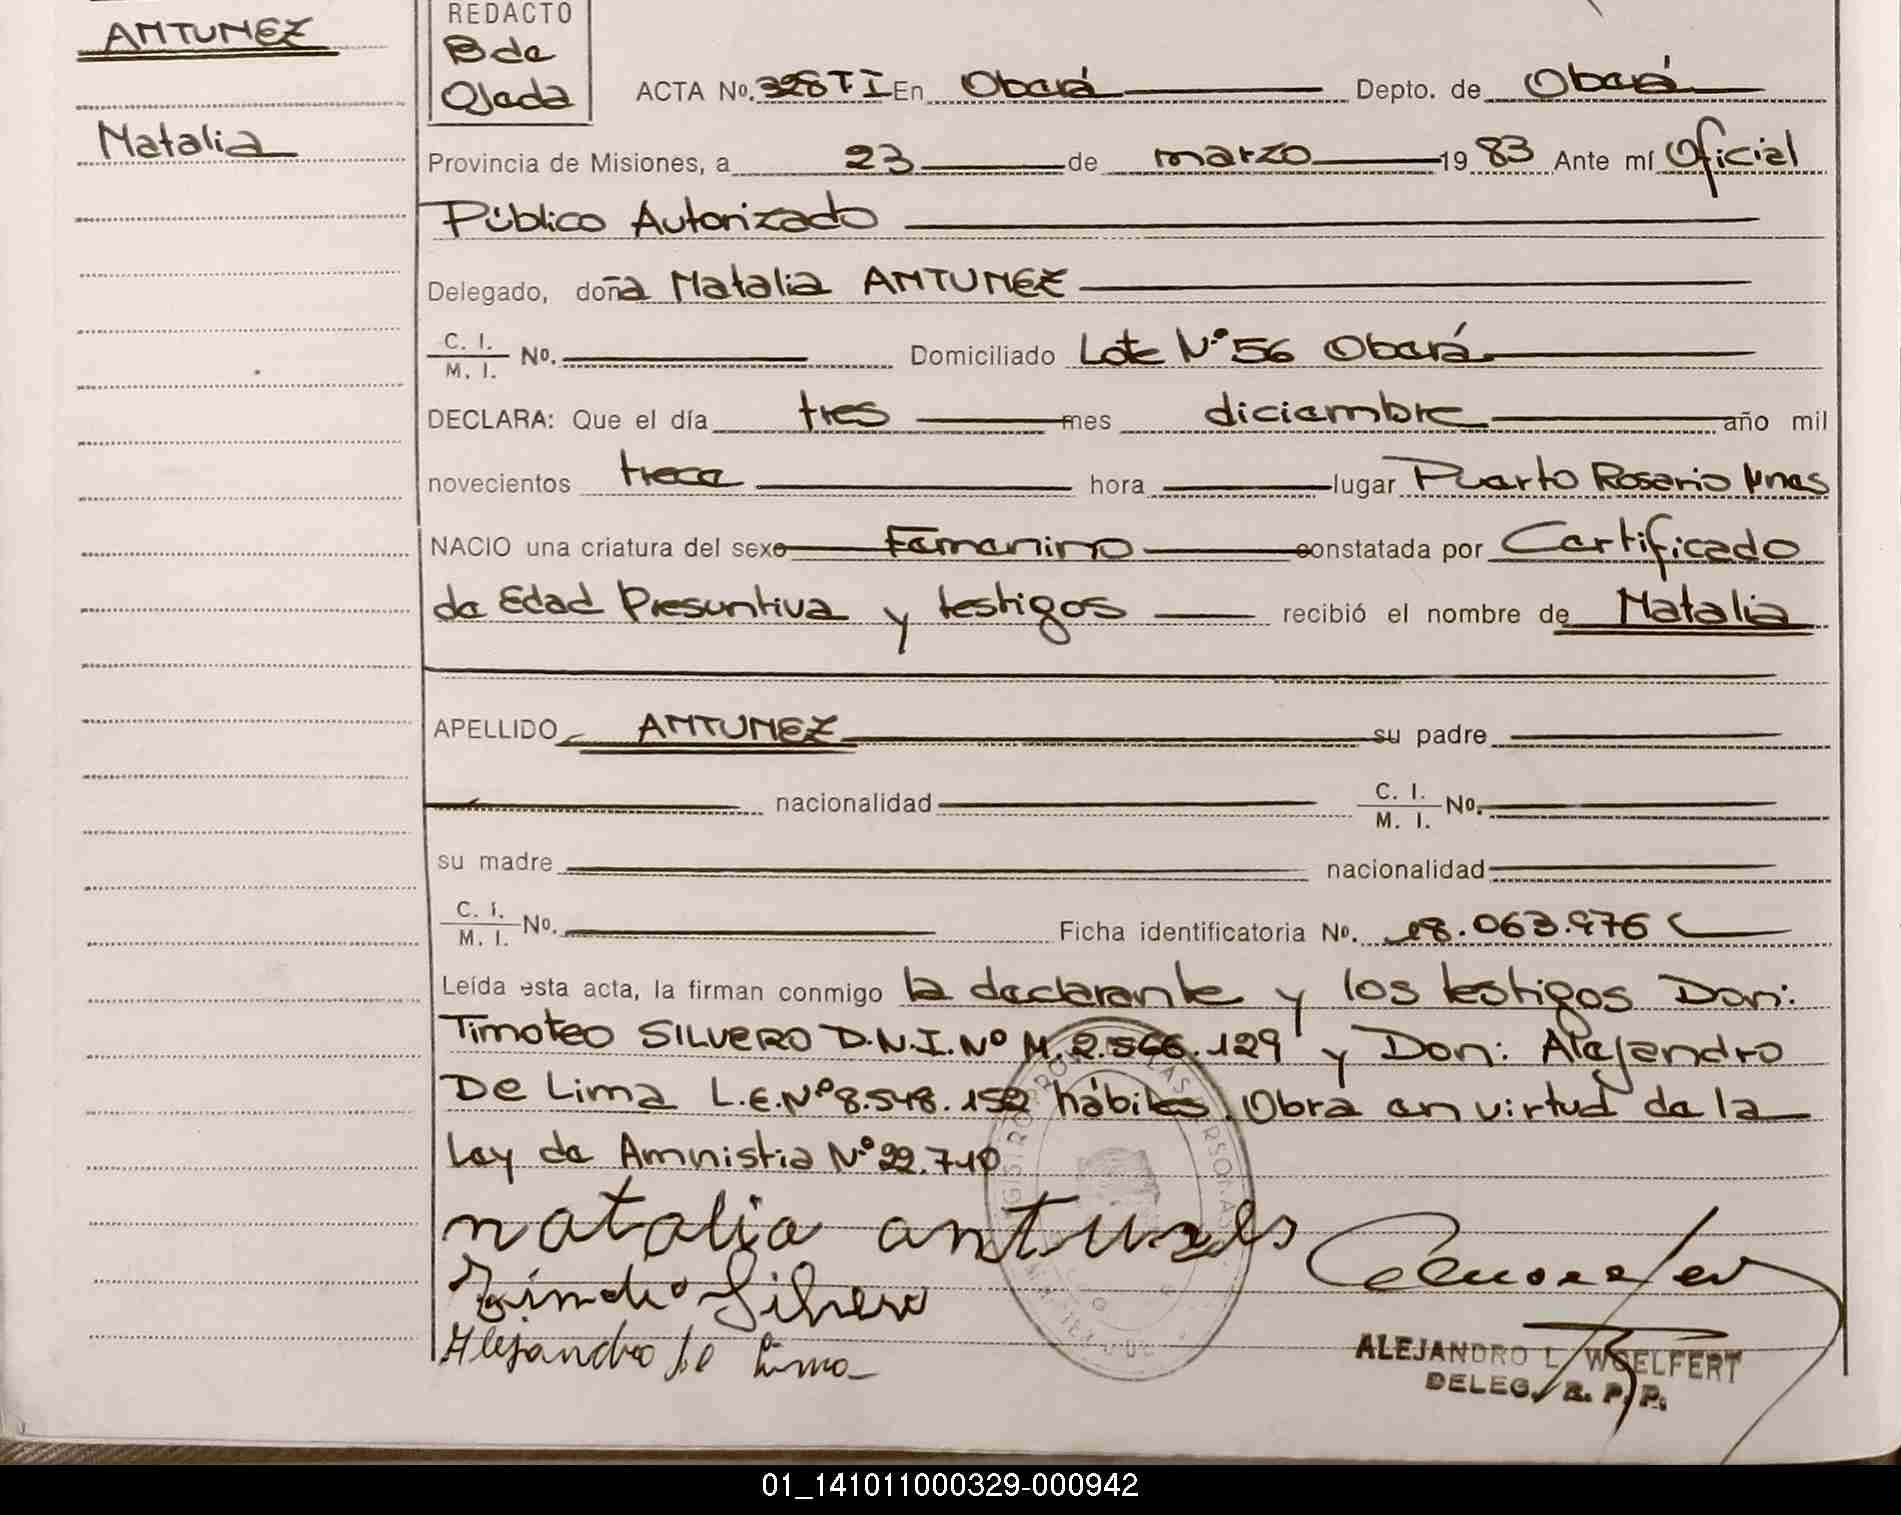 ANTUNEZ
Natalia
REDACTO
B de
Ojeda
ACTA No. 328 T. I En Oberá Depto. de Oberá
Provincia de Misiones, a 23 de marzo 19 83 Ante mí Oficial
Público Autorizado
Delegado, doña Natalia ANTUNEZ
C. I. / M. I. No. Domiciliado Lote Nº 56 Oberá
DECLARA: Que el día tres mes diciembre año mil
novecientos trece hora lugar Puerto Rosario Mnes
NACIO una criatura del sexo Femenino constatada por Certificado
de Edad Presuntiva y testigos recibió el nombre de Natalia
APELLIDO ANTUNEZ su padre
nacionalidad C. I. / M. I. No.
su madre nacionalidad
C. I. / M. I. No. Ficha identificatoria No. 18.063.976
Leída esta acta, la firman conmigo la declarante y los testigos Don:
Timoteo SILVERO D.N.I. Nº M. 2.566.129 y Don: Alejandro
De Lima L.E. Nº 8.548.152 hábiles. Obra en virtud de la
Ley de Amnistia Nº 22.710
natalia antunes
Timoteo Silvero
Alejandro de Lima
ALEJANDRO L. WOELFERT
DELEG. R. P. P.
01_141011000329-000942